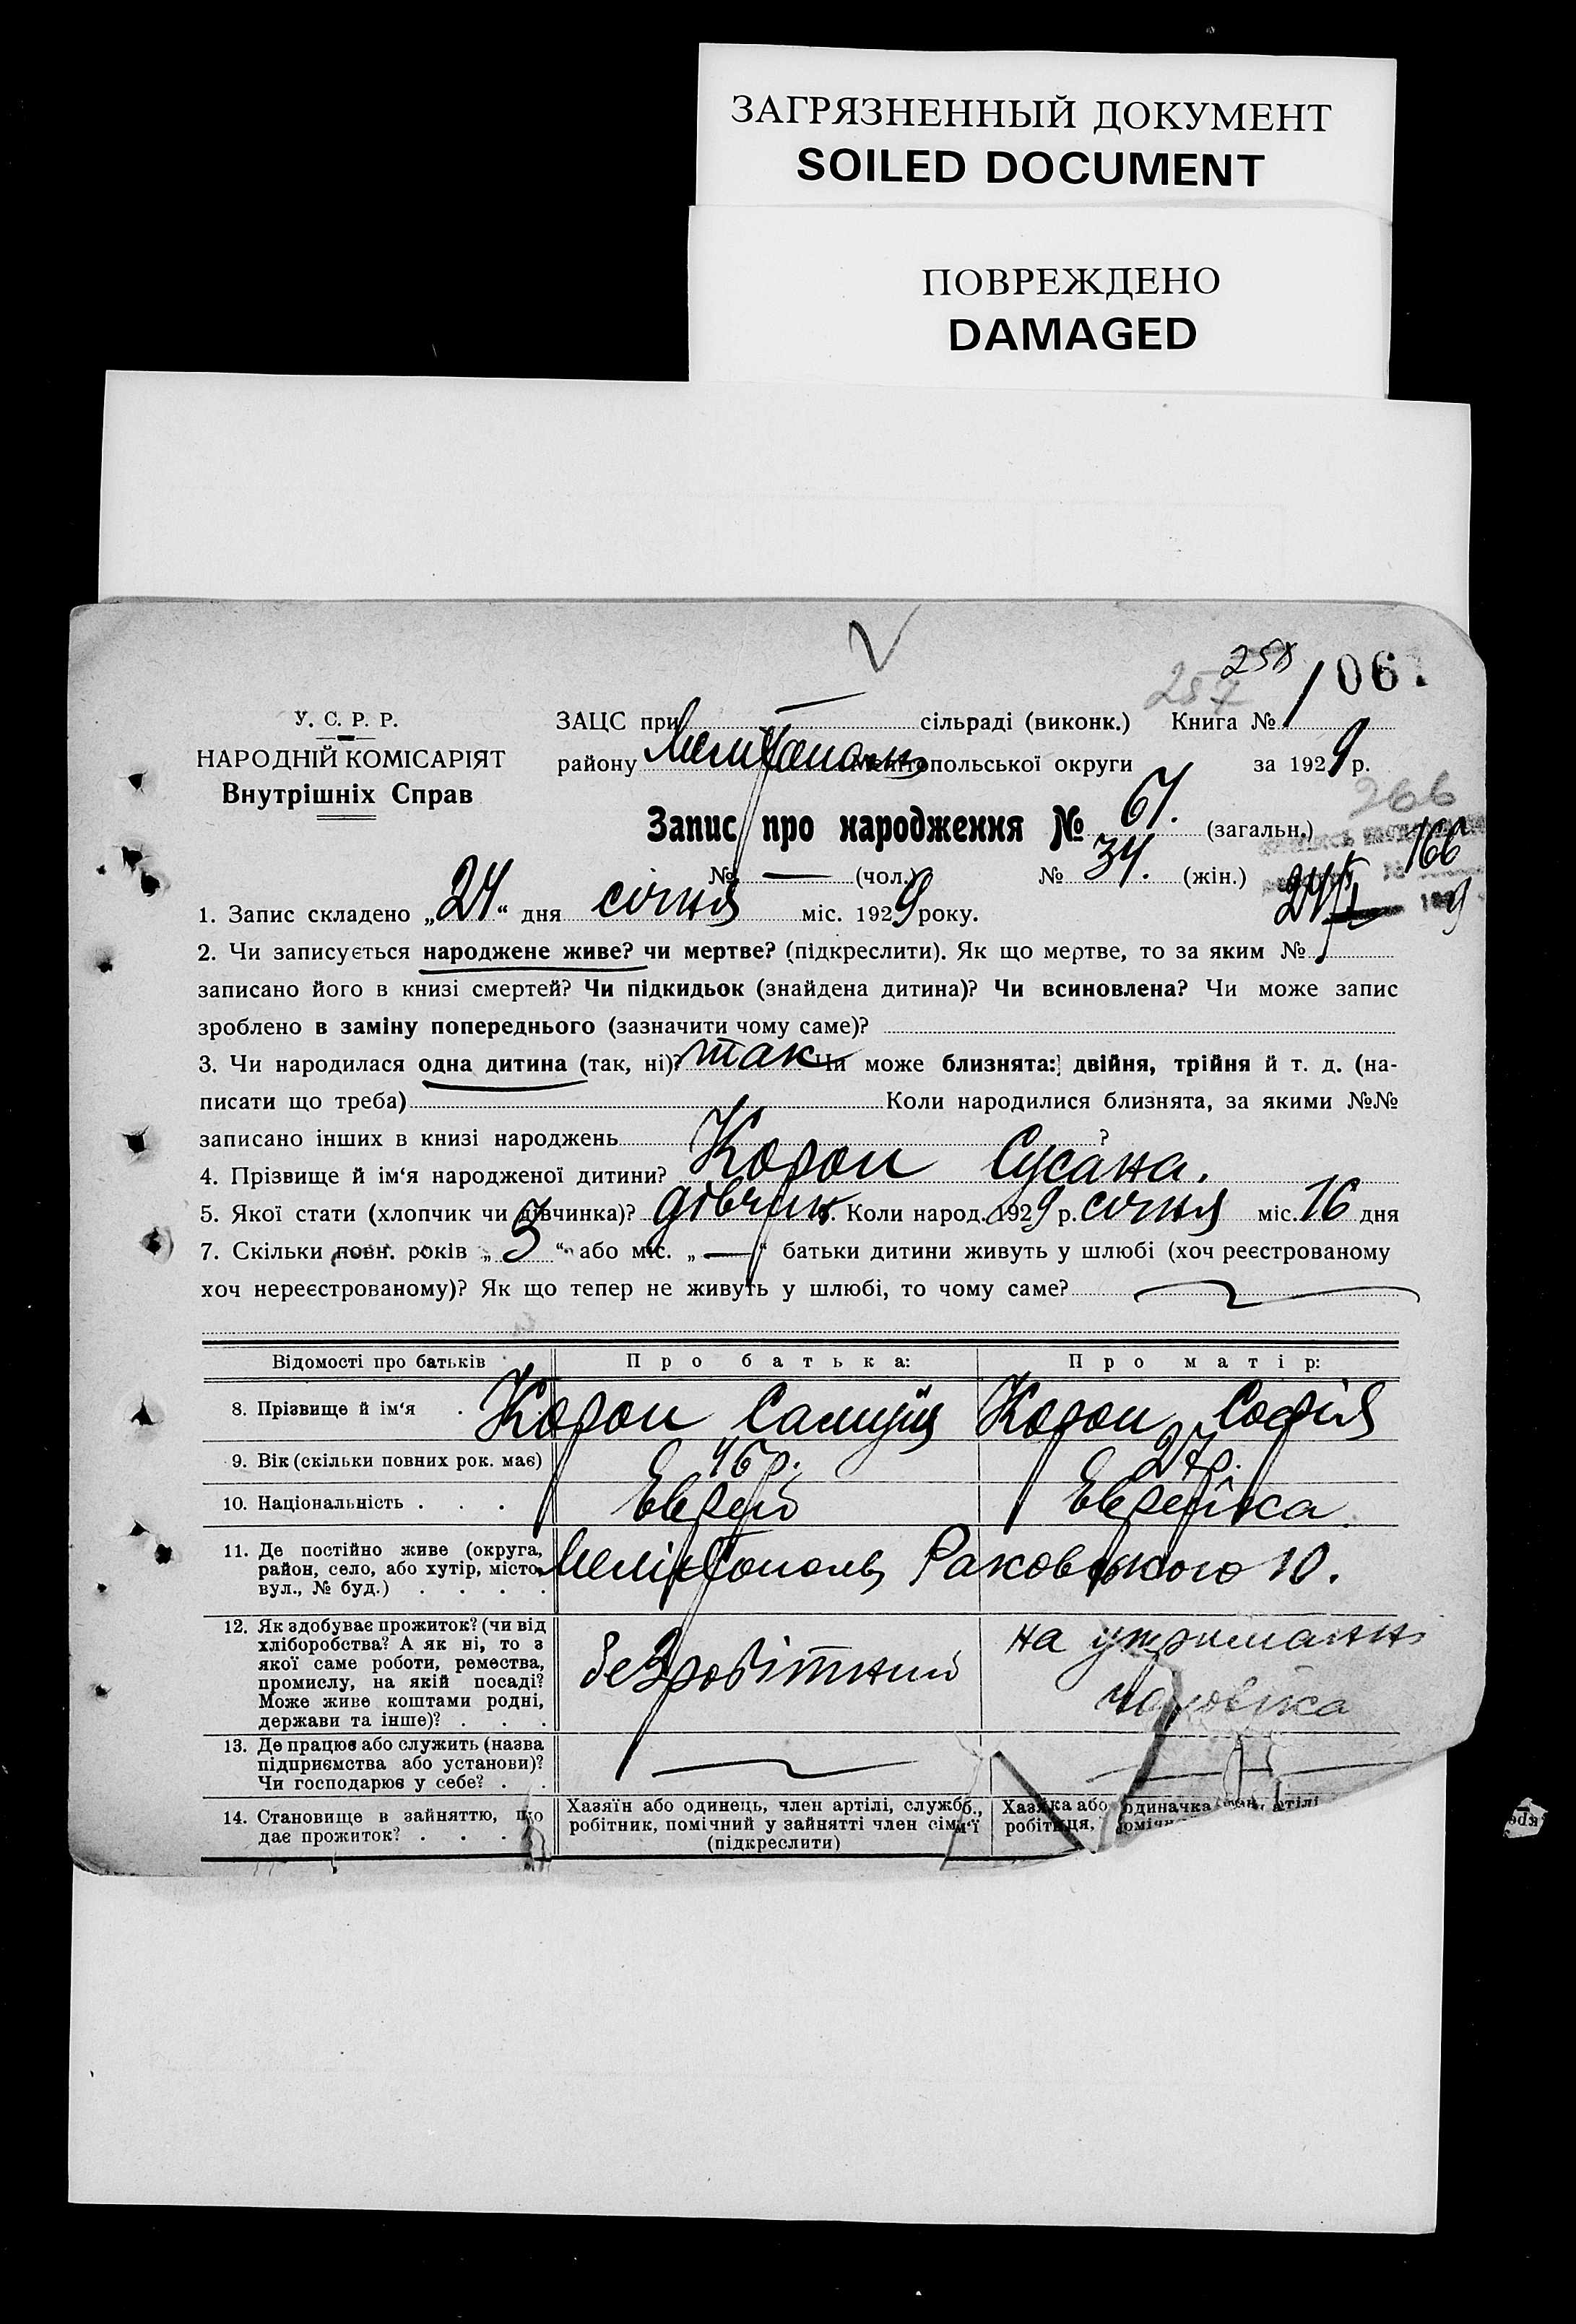 ЗАГРЯЗНЕННЫЙ ДОКУМЕНТ
SOILED DOCUMENT
ПОВРЕЖДЕНО
DAMAGED
258
257
106.
У. С. Р. Р.
НАРОДНІЙ КОМІСАРІЯТ
Внутрішніх Справ
ЗАЦС при — сільраді (виконк.) Книга № 1
району Мелітополь Мелітопольської округи за 1929 р.
266
Запис про народження № 67. (загальн.)
166
№ — (чол.) № 34. (жін.)
1. Запис складено „24“ дня січня міс. 1929 року.
2. Чи записується народжене живе? чи мертве? (підкреслити). Як що мертве, то за яким №
записано його в книзі смертей? Чи підкидьок (знайдена дитина)? Чи всиновлена? Чи може запис
зроблено в заміну попереднього (зазначити чому саме)?
3. Чи народилася одна дитина (так, ні)? так Чи може близнята: двійня, трійня й т. д. (на-
писати що треба) Коли народилися близнята, за якими №№
записано інших в книзі народжень ?
4. Прізвище й ім‘я народженої дитини? Сусана.
5. Якої стати (хлопчик чи дівчинка)? дівчин. Коли народ. 1929 р. січня міс. 16 дня
7. Скільки повн. років „5“ або міс. „—“ батьки дитини живуть у шлюбі (хоч реєстрованому
хоч нереєстрованому)? Як що тепер не живуть у шлюбі, то чому саме?
Відомості про батьків Про батька: Про матір:
8. Прізвище й ім‘я . Софія
9. Вік (скільки повних рок. має) 46 р. 27 р.
10. Національність . . . Еврей Еврейка
11. Де постійно живе (округа,
район, село, або хутір, місто,
вул., № буд.) . . . .
Мелітополь Раковського 10.
12. Як здобуває прожиток? (чи від
хліборобства? А як ні, то з
якої саме роботи, ремества,
промислу, на якій посаді?
Може живе коштами родні,
держави та інше)? . . .
безробітний
на утриманні
чоловіка
13. Де працює або служить (назва
підприємства або установи)?
Чи господарює у себе? . .
14. Становище в зайняттю, що
дає прожиток? . . .
Хазяїн або одинець, член артілі, службб.,
робітник, помічний у зайнятті член сімм‘ї
(підкреслити)
Хазяка або одиначка артілі
робітниця,